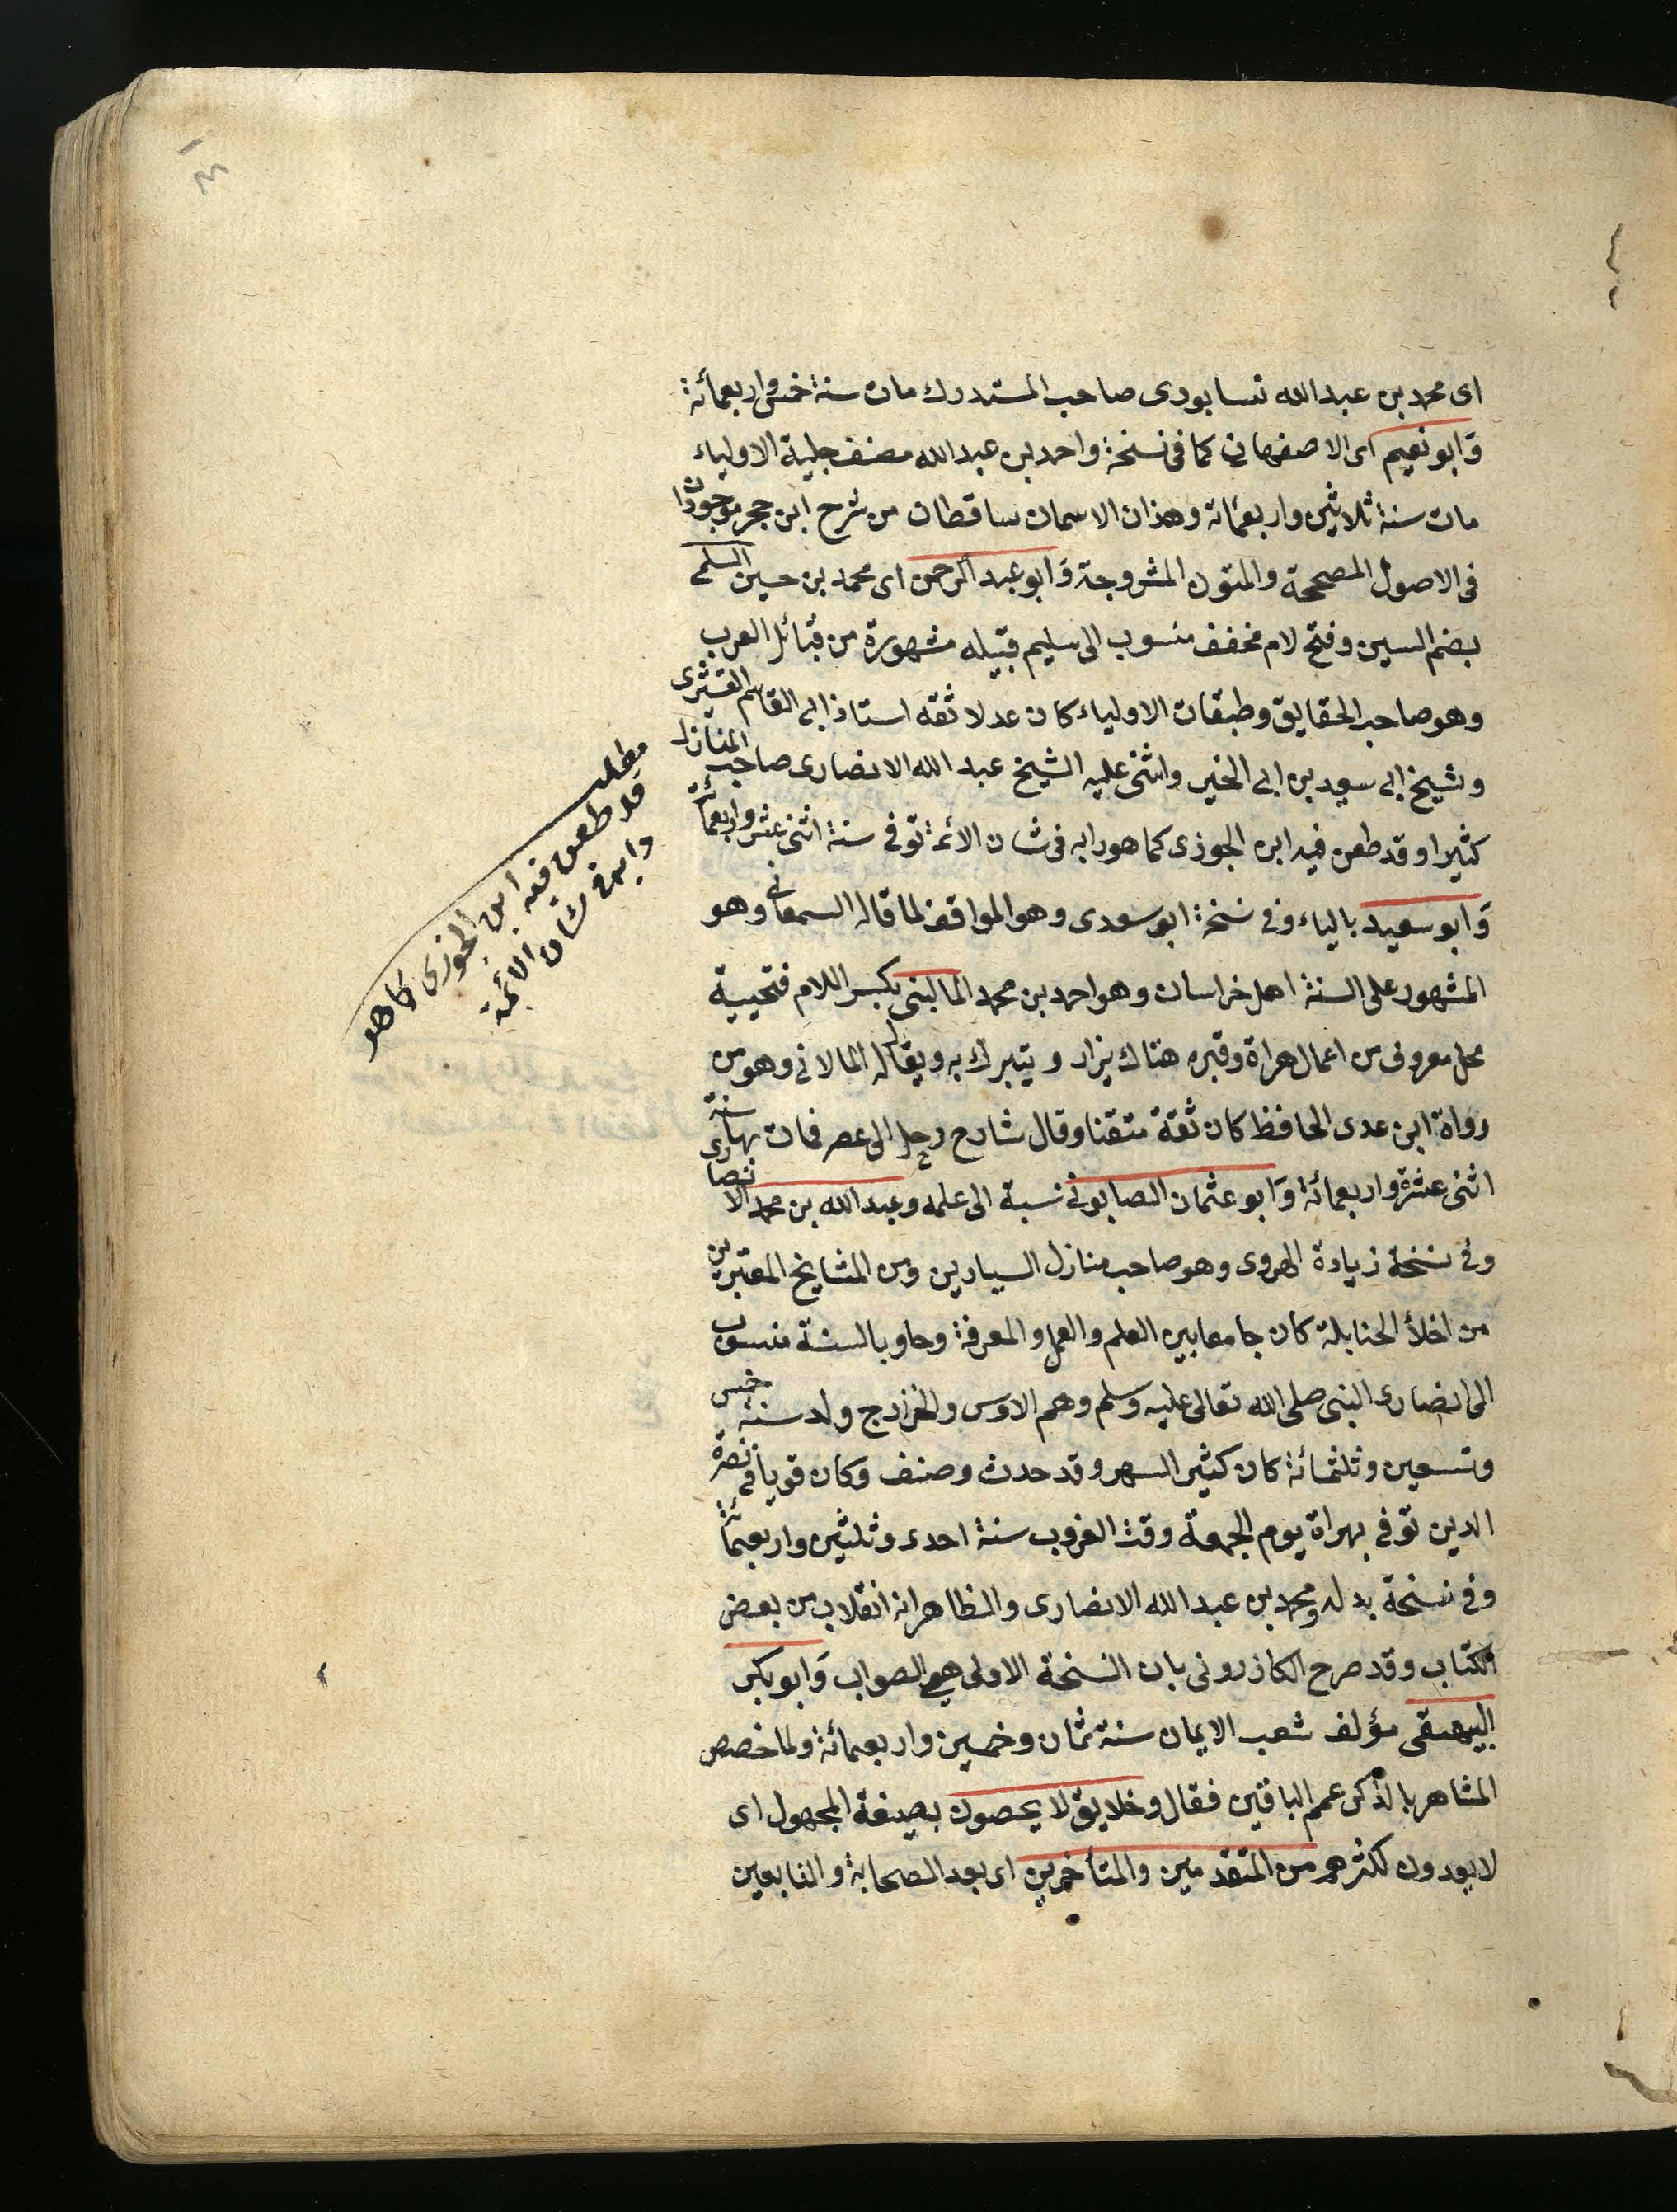 اى محمد بن عبد الله نسابودى صاحب المستدرك مات سنة خمس واربعمائة
وَابو نعيم اى الاصفهانى كما فى نسخة واحمد بن عبد الله مصنف حلية الاولياء
مات سنة ثلاثين واربعمائة وهذان الاسمان ساقطان من شرح ابن حجر موجودان
فى الاصول المصححة والمتون المشروحة وَابو عبد الرحمن اى محمد بن حسين السلمى
بضم السين وفتح لام مخفف منسوب الى سليم قبيله مشهورة من قبائل العرب
وهو صاحب الحقايق وطبقات الاولياء كان عدلا ثقه استاذ ابى القاسم القشيرى
وشيخ ابى سعيد بن ابى الخير واثنى عليه الشيخ عبد الله الانصارى صاحب المنازل
كثيرا وقد طعن فيه ابن الجوزى كما هو دابه فى شان الائمة توفى سنة اثنى عشر واربعمائة
وَابو سعيد بالياء وفى نسخة ابو سعدى وهو الموافق لما قاله السمعانى وهو
المشهور على السنة اهل خراسان وهو احمد بن محمد المالينى بكسر اللام فتحيية
محل معروف من اعمال هراة وقبره هناك يزار ويتبرك به ويقال له المالانى وهو من
رواة ابن عدى الحافظ كان ثقة متقنا وقال شارح رحل الى مصر فمات بها فى سنة
اثنى عشرة واربعمائة وَابو عثمان الصابونى نسبة الى علمه وعبد الله بن محمد الانصارى
وفى نسخة زيادة الهروى وهو صاحب منازل السيارين ومن المشايخ المعتبرين
من اخلأ الحنابلة كان جامعا بين العلم والعمل والمعرفة وحاويا لسنة منسوب
الى انصارى النبى صلى الله تعالى عليه وسلم وهم الاوس والخزرج ولد سنة خمس
وتسعين وثلثمائة كان كثير السهر وقد حدث وصنف وكان قويا فى نصرة
الدين توفى بهراة يوم الجمعة وقت الغروب سنة احدى وثلثين واربعمائة
وفى نسخة بدله ومحمد بن عبد الله الانصارى والظاهر انه انقلاب من بعض
الكتاب وقد صرح الكازرونى بان النسخة الاولى هى الصواب وَابو بكر
البيهقى مؤلف شعب الايمان سنة ثمان وخمسين واربعمائة ولما خصص
المشاهر بالذكر عمم الباقين فقال وخلايق لا يحصون بصيغة المجهول اى
لا يعدون لكثرهم من المتقدمين والمتأخرين اى بعد الصحابة والتابعين
مطلب
قد طعن فيه ابن الجوزى كما هو
دابه فى شان الائمة